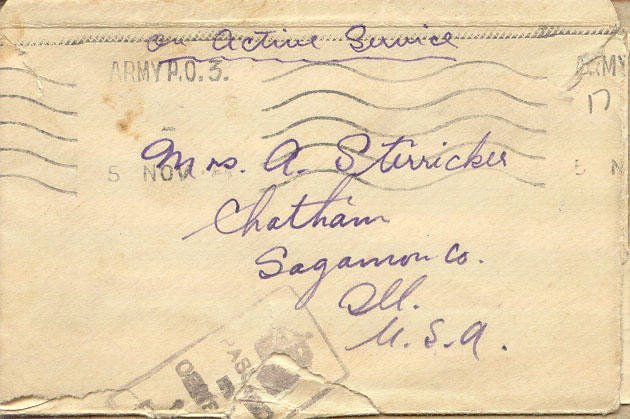 on Active Service
ARMY P.O. 3.
ARMY
17
Mrs. A. Sterricker
5 NOV
5 N
Chatham
Sagamon Co.
Ill.
U.S.A.